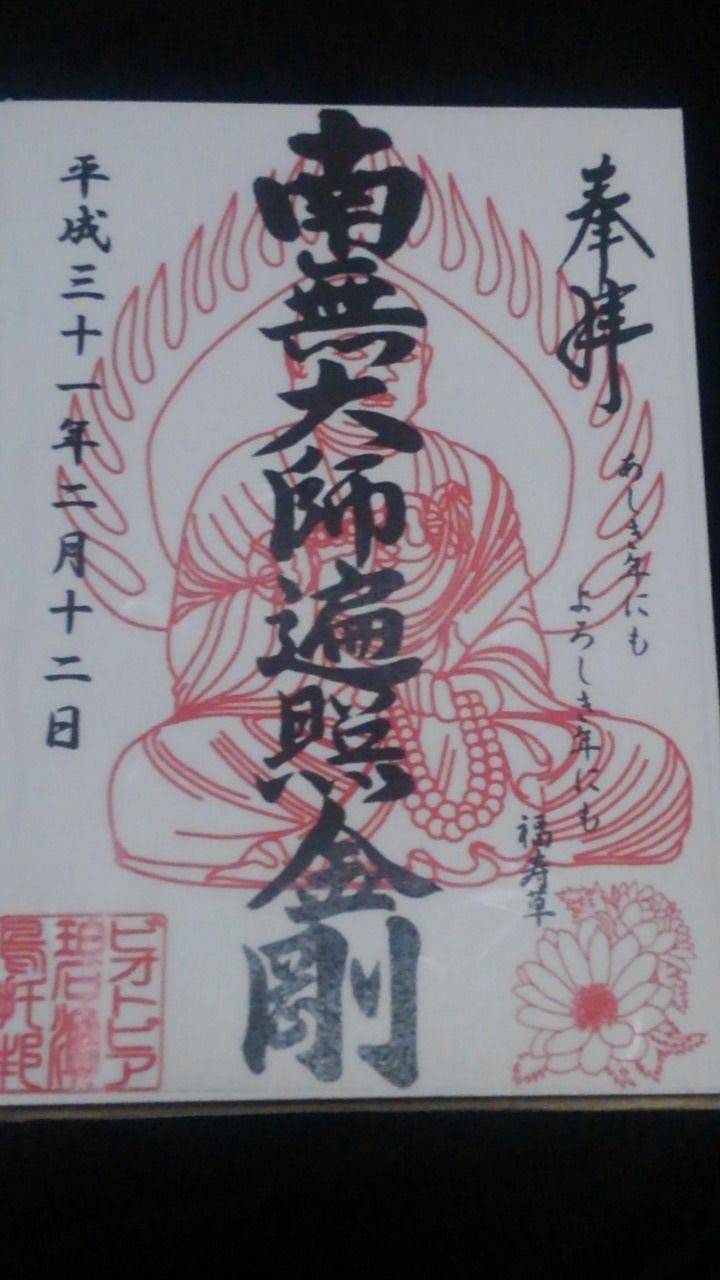 奉拝
あしき年にも
よろしき年にも
福寿草
南無大師遍照金剛
平成三十一年二月十二日
ビオトピア